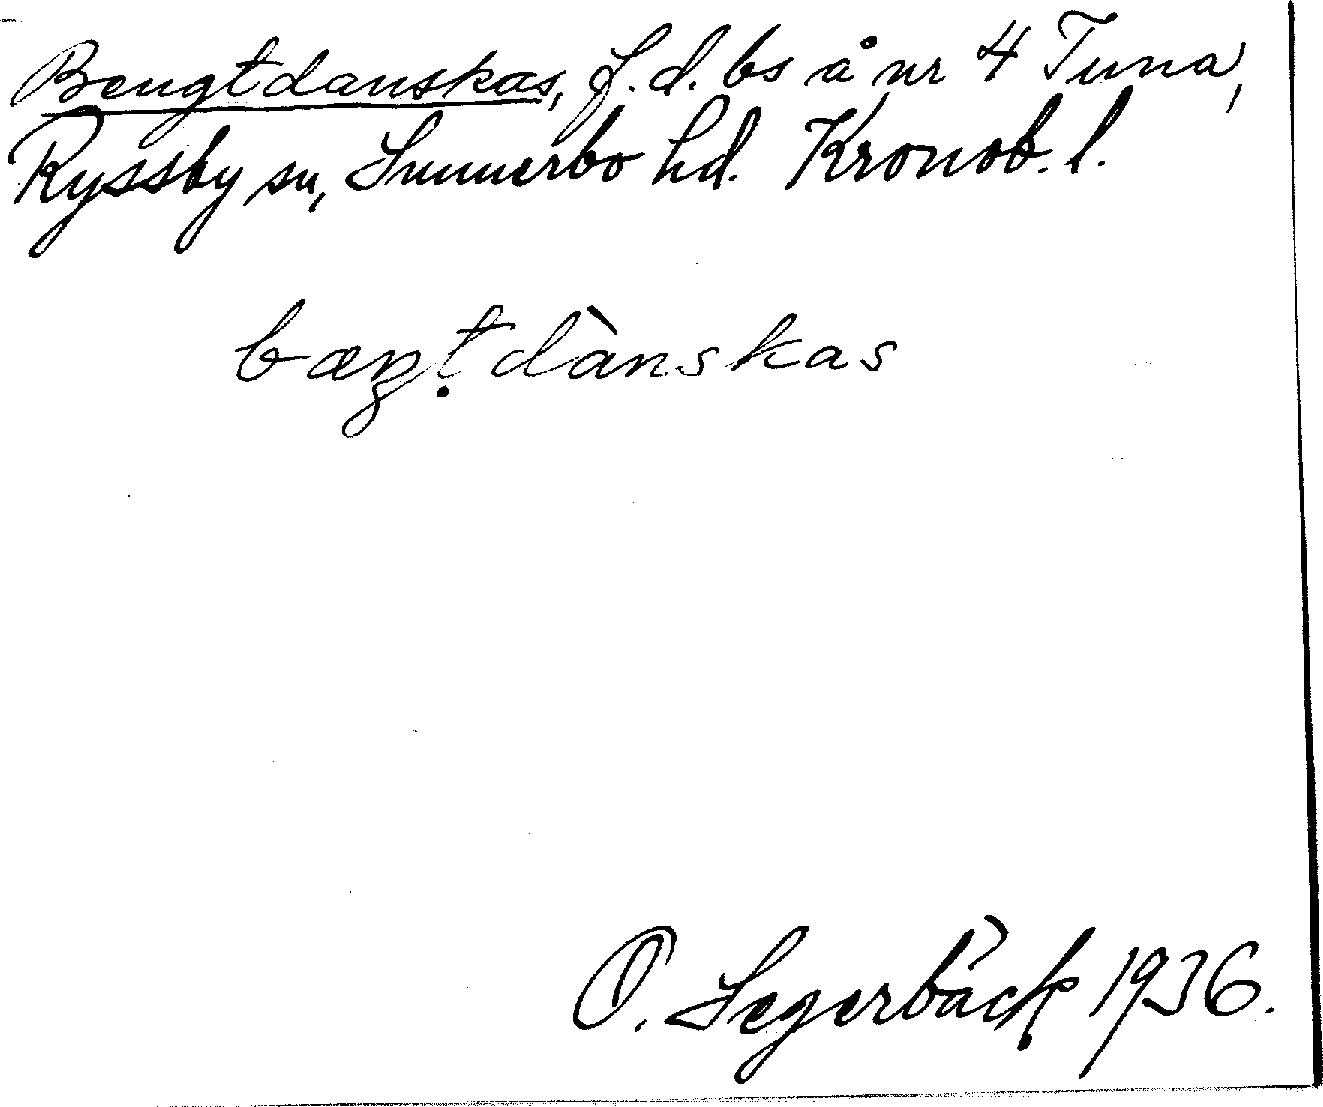 Bengtdanskas, f.d. bs å nr 4 Tuna,
Ryssby sn, Sunnerbo hd. Kronob. l.
bæŋ̣tdànskas
O. Segerbäck 1936.